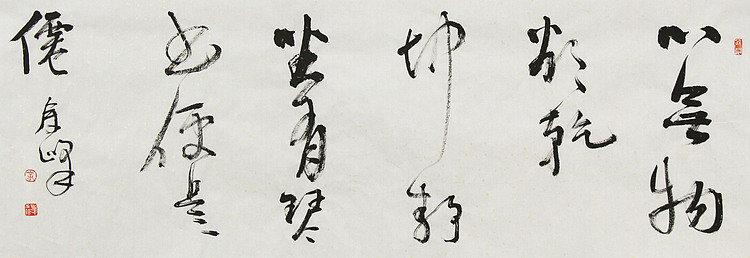 心無物
欲乾
坤靜
坐有琴
書便是
僊
月峰